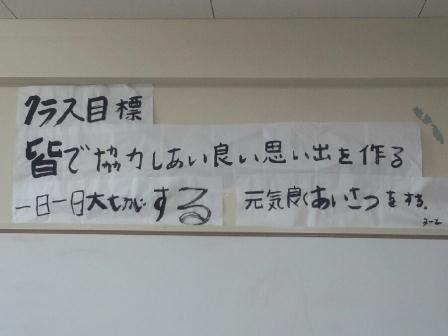 クラス目標
皆で協力しあい良い思い出を作る
一日一日大切にする 元気良くあいさつをする。
3-2